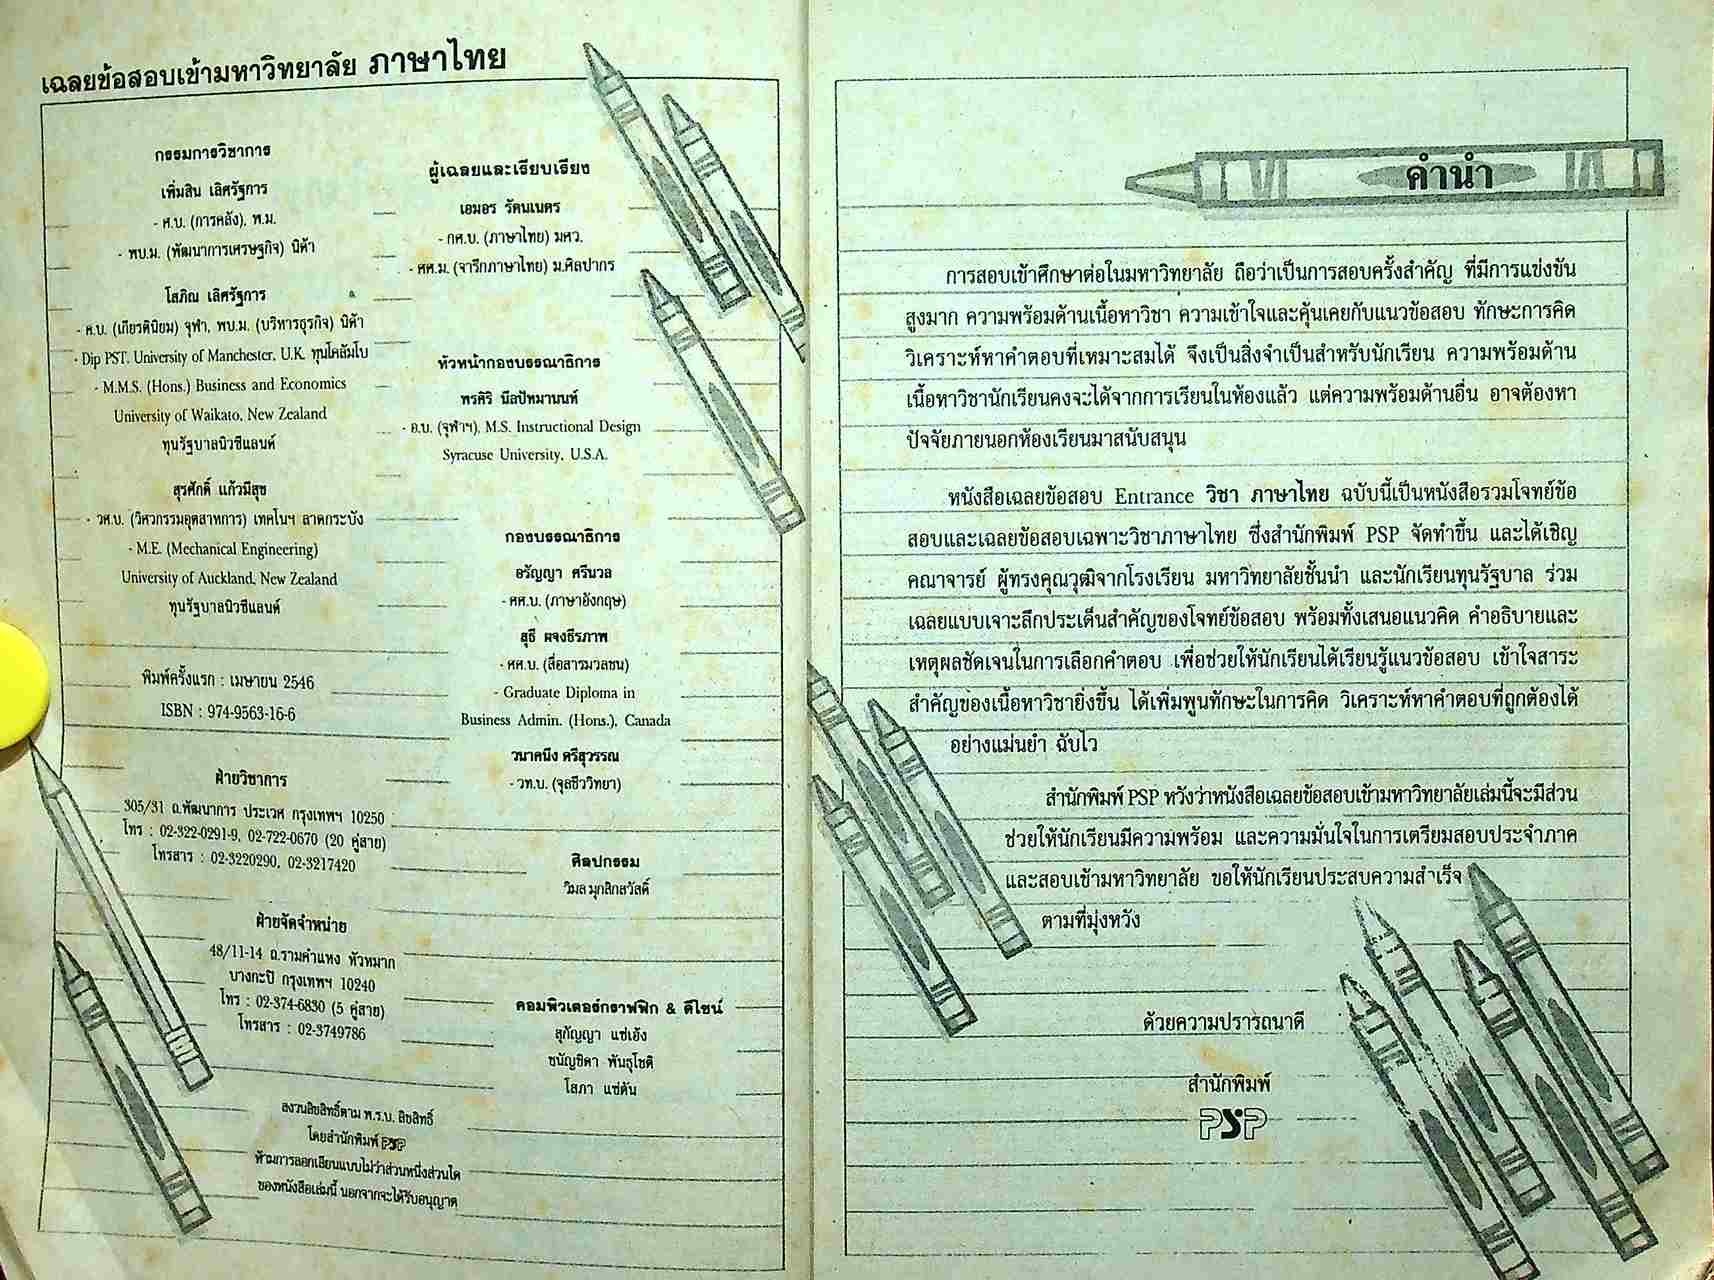 เฉลยข้อสอบเข้ามหาวิทยาลัย ภาษาไทย
กรรมการวิชาการ
เพิ่มสิน เลิศรัฐการ
- ศ.บ. (การคลัง), พ.ม.
- พบ.ม. (พัฒนาการเศรษฐกิจ) นิด้า
โสภิณ เลิศรัฐการ
- ศ.บ. (เกียรตินิยม) จุฬา, พบ.ม. (บริหารธุรกิจ) นิด้า
- Dip PST, University of Manchester, U.K. ทุนโคลัมโบ
- M.M.S. (Hons.) Business and Economics
University of Waikato, New Zealand
ทุนรัฐบาลนิวซีแลนด์
สุรศักดิ์ แก้วมีสุข
- วศ.บ. (วิศวกรรมอุตสาหการ) เทคโนฯ ลาดกระบัง
- M.E. (Mechanical Engineering)
University of Auckland, New Zealand
ทุนรัฐบาลนิวซีแลนด์
พิมพ์ครั้งแรก : เมษายน 2546
ISBN : 974-9563-16-6
ฝ่ายวิชาการ
305/31 ถ.พัฒนาการ ประเวศ กรุงเทพฯ 10250
โทร : 02-322-0291-9, 02-722-0670 (20 คู่สาย)
โทรสาร : 02-3220290, 02-3217420
ฝ่ายจัดจำหน่าย
48/11-14 ถ.รามคำแหง หัวหมาก
บางกะปิ กรุงเทพฯ 10240
โทร : 02-374-6830 (5 คู่สาย)
โทรสาร : 02-3749786
ผู้เฉลยและเรียบเรียง
เอมอร รัตนเนตร
- กศ.บ. (ภาษาไทย) มศว.
- ศศ.ม. (จารึกภาษาไทย) ม.ศิลปากร
หัวหน้ากองบรรณาธิการ
พรศิริ นีลปัทมานนท์
- อ.บ. (จุฬาฯ), M.S. Instructional Design
Syracuse University, U.S.A.
กองบรรณาธิการ
อรัญญา ศรีนวล
- ศศ.บ. (ภาษาอังกฤษ)
สุธี ผจงธีรภาพ
- ศศ.บ. (สื่อสารมวลชน)
- Graduate Diploma in
Business Admin. (Hons.), Canada
วนาคนึง ศรีสุวรรณ
- วท.บ. (จุลชีววิทยา)
ศิลปกรรม
วิมล มุกสิกสวัสดิ์
คอมพิวเตอร์กราฟฟิก & ดีไซน์
สุกัญญา แซ่เฮ้ง
ชนัญชิดา พันธุโชติ
โสภา แซ่ตัน
สงวนลิขสิทธิ์ตาม พ.ร.บ. ลิขสิทธิ์
โดยสำนักพิมพ์ PSP
ห้ามการลอกเลียนแบบไม่ว่าส่วนหนึ่งส่วนใด
ของหนังสือเล่มนี้ นอกจากจะได้รับอนุญาต
คำนำ
การสอบเข้าศึกษาต่อในมหาวิทยาลัย ถือว่าเป็นการสอบครั้งสำคัญ ที่มีการแข่งขัน
สูงมาก ความพร้อมด้านเนื้อหาวิชา ความเข้าใจและคุ้นเคยกับแนวข้อสอบ ทักษะการคิด
วิเคราะห์หาคำตอบที่เหมาะสมได้ จึงเป็นสิ่งจำเป็นสำหรับนักเรียน ความพร้อมด้าน
เนื้อหาวิชานักเรียนคงจะได้จากการเรียนในห้องแล้ว แต่ความพร้อมด้านอื่น อาจต้องหา
ปัจจัยภายนอกห้องเรียนมาสนับสนุน
หนังสือเฉลยข้อสอบ Entrance วิชา ภาษาไทย ฉบับนี้เป็นหนังสือรวมโจทย์ข้อ
สอบและเฉลยข้อสอบเฉพาะวิชาภาษาไทย ซึ่งสำนักพิมพ์ PSP จัดทำขึ้น และได้เชิญ
คณาจารย์ ผู้ทรงคุณวุฒิจากโรงเรียน มหาวิทยาลัยชั้นนำ และนักเรียนทุนรัฐบาล ร่วม
เฉลยแบบเจาะลึกประเด็นสำคัญของโจทย์ข้อสอบ พร้อมทั้งเสนอแนวคิด คำอธิบายและ
เหตุผลชัดเจนในการเลือกคำตอบ เพื่อช่วยให้นักเรียนได้เรียนรู้แนวข้อสอบ เข้าใจสาระ
สำคัญของเนื้อหาวิชายิ่งขึ้น ได้เพิ่มพูนทักษะในการคิด วิเคราะห์หาคำตอบที่ถูกต้องได้
อย่างแม่นยำ ฉับไว
สำนักพิมพ์ PSP หวังว่าหนังสือเฉลยข้อสอบเข้ามหาวิทยาลัยเล่มนี้จะมีส่วน
ช่วยให้นักเรียนมีความพร้อม และความมั่นใจในการเตรียมสอบประจำภาค
และสอบเข้ามหาวิทยาลัย ขอให้นักเรียนประสบความสำเร็จ
ตามที่มุ่งหวัง
ด้วยความปรารถนาดี
สำนักพิมพ์
PSP